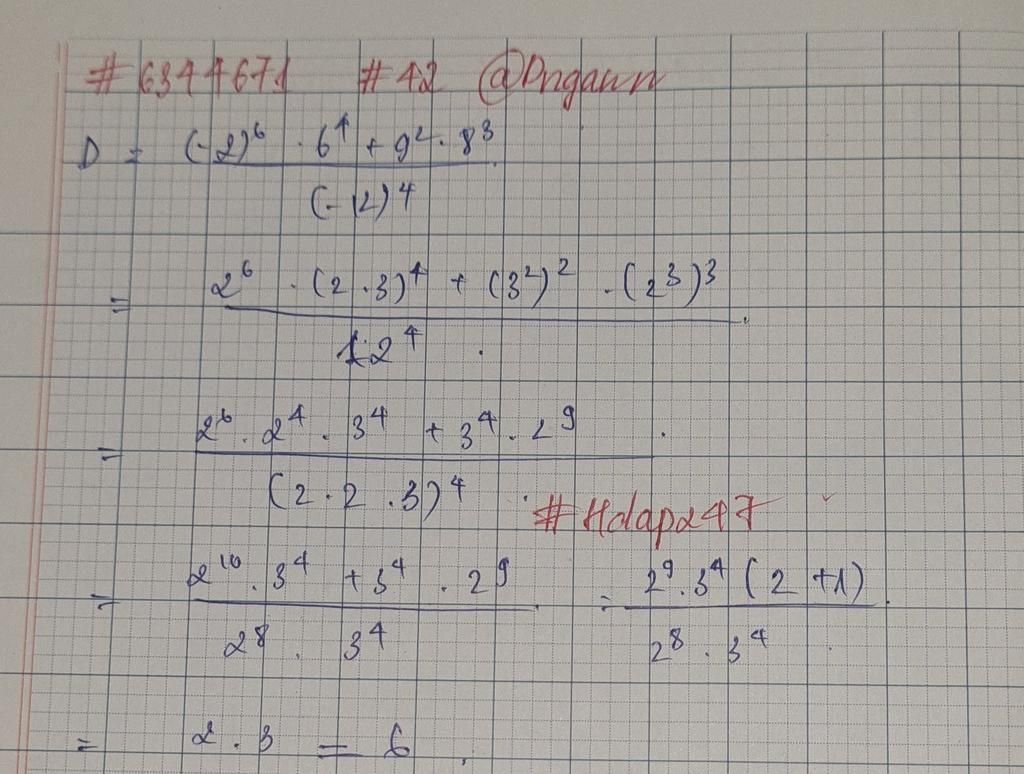 # 6344671 #42 @Dngann
D = (-2)⁶ . 6⁴ + 9² . 8³
(-12)⁴
= 2⁶ . (2 . 3)⁴ + (3²)² . (2³)³
12⁴ .
= 2⁶ . 2⁴ . 3⁴ + 3⁴ . 2⁹ .
(2 . 2 . 3)⁴ .
# Hdap247
= 2¹⁰ . 3⁴ + 3⁴ . 2⁹ = 2⁹ . 3⁴ (2 + 1) .
2⁸ . 3⁴ 2⁸ . 3⁴ .
= 2 . 3 = 6 .